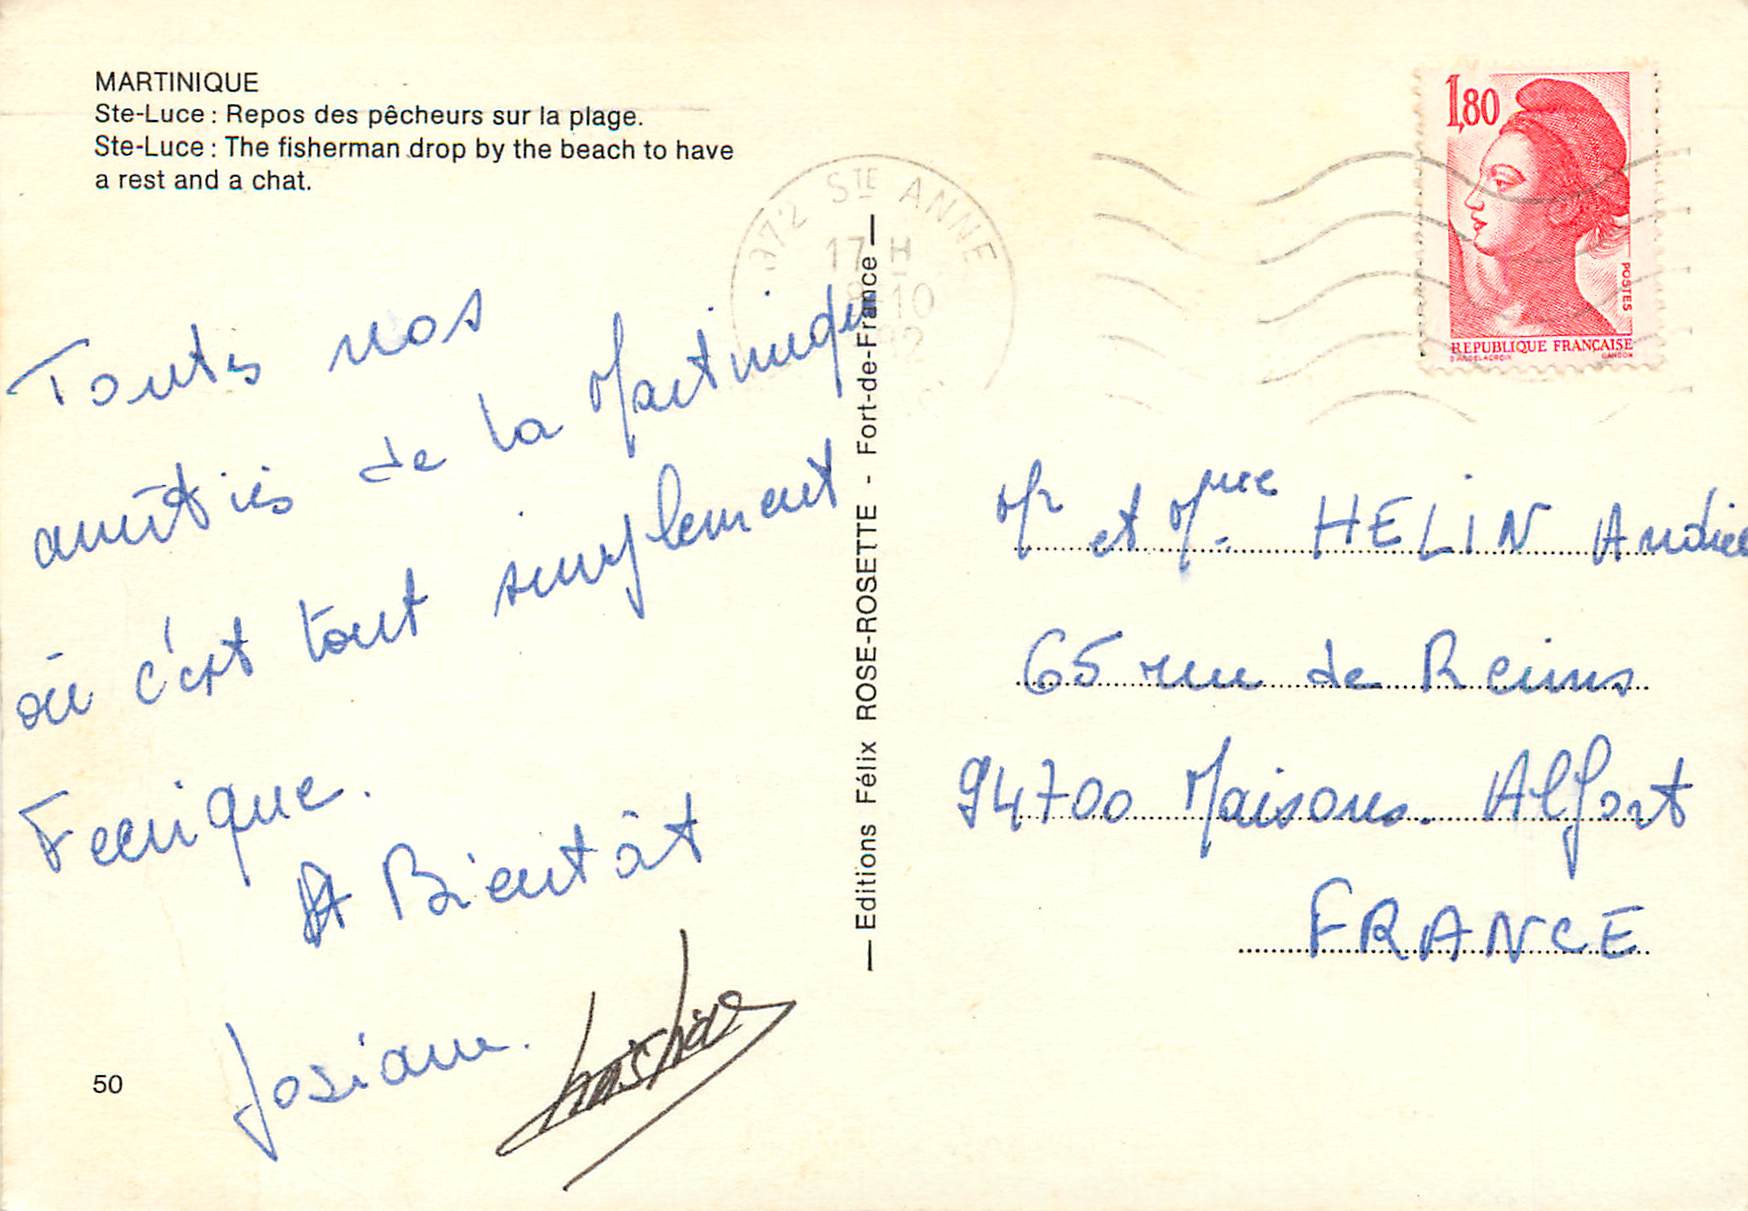 MARTINIQUE
Ste-Luce : Repos des pêcheurs sur la plage.
Ste-Luce : The fisherman drop by the beach to have
a rest and a chat.
Toutes nos
amitiés de la Martinique
où c'est tout simplement
Feerique.
A Bientôt
Josiane.
50
— Editions Félix ROSE-ROSETTE - Fort-de-France —
972 STE ANNE
17 H
8-10
1,80
POSTES
REPUBLIQUE FRANÇAISE
D'APRÈS DELACROIX GANDON
Mr et Mme HELIN André
65 rue de Reims
94700 Maisons. Alfort
FRANCE